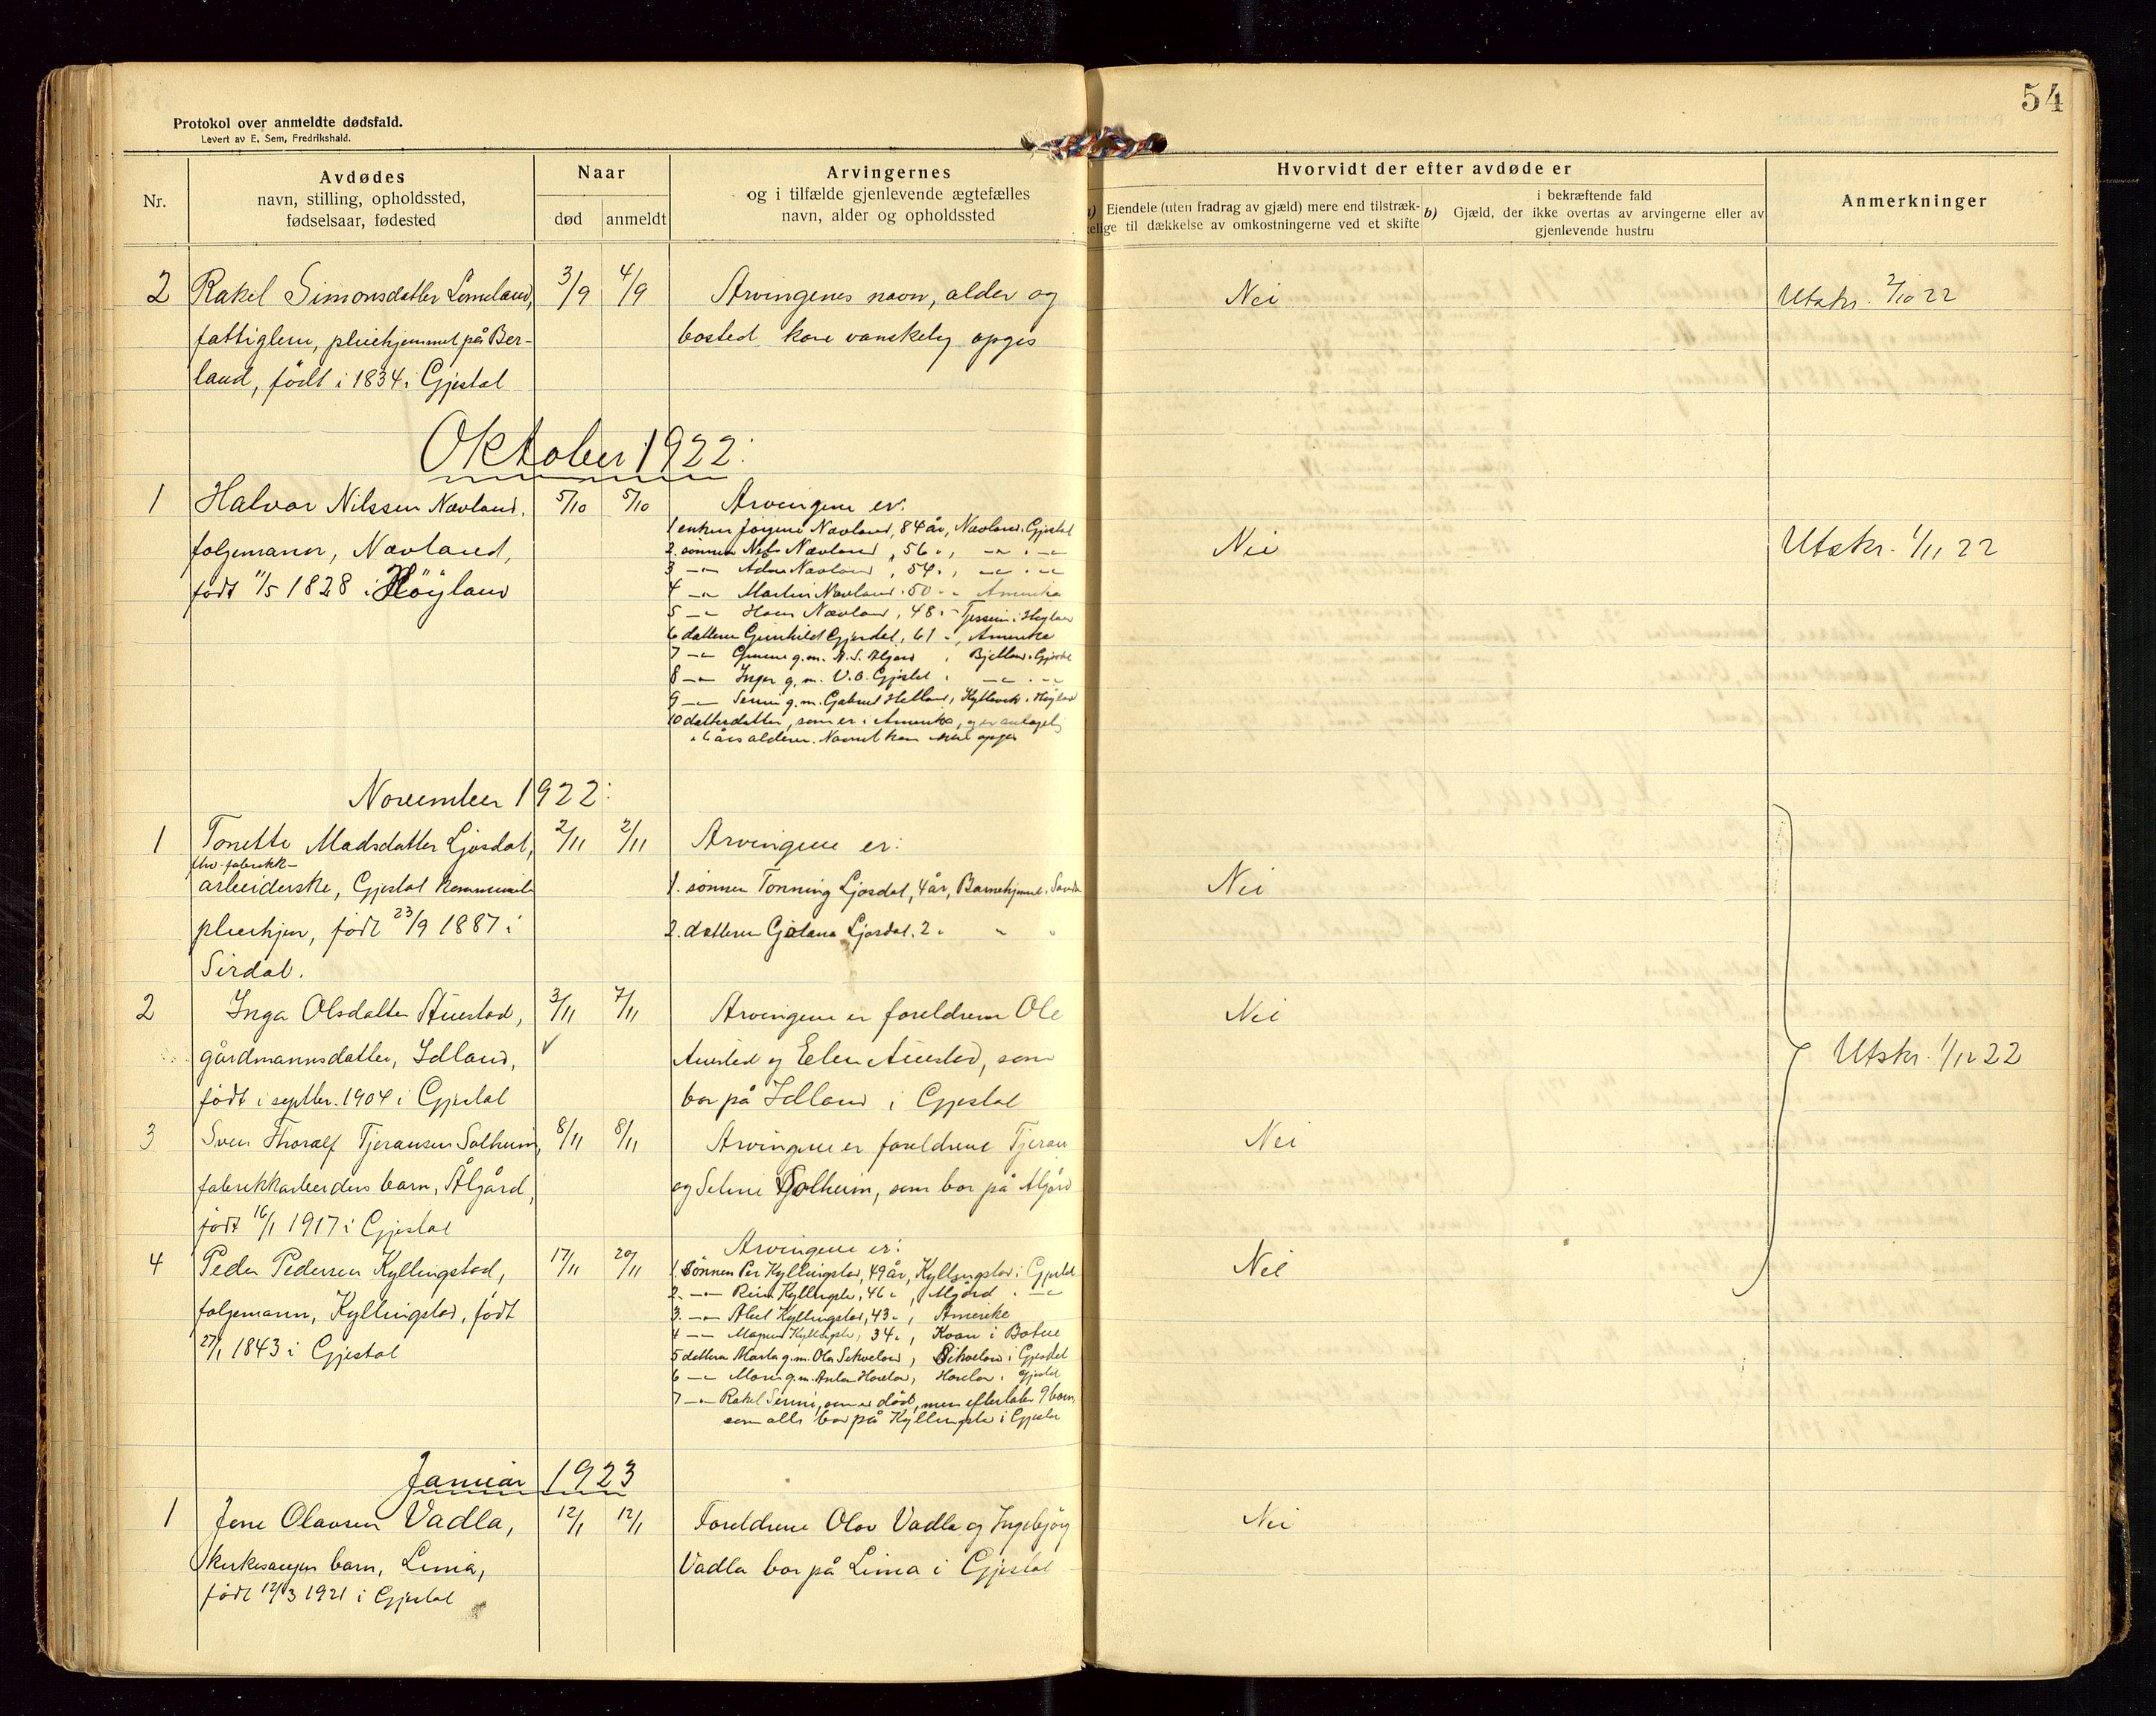 54
Protokol over anmeldte dødsfald.
Levert av E. Sem, Fredrikshald.
Nr.
Avdødes
navn, stilling, opholdssted,
fødselsaar, fødested
Naar
død
anmeldt
Arvingernes
og i tilfælde gjenlevende ægtefælles
navn, alder og opholdssted
Hvorvidt der efter avdøde er
a) Eiendele (uten fradrag av gjæld) mere end tilstræk-
kelige til dækkelse av omkostningerne ved et skifte
i bekræftende fald
b) Gjæld, der ikke overtas av arvingerne eller av
gjenlevende hustru
Anmerkninger
2 Rakel Simonsdatter Lomeland, 3/9 4/9 Arvingenes navn, alder og Nei Utskr. 2/10 22
fattiglem, pleiehjemmet på Ber- bosted kan vanskelig opgis
land, født i 1834 i Gjestal
Oktober 1922:
1 Halvor Nilssen Nævland. 5/10 5/10 Arvingene er:
1 enken Jørgine Nævland, 84 år, Nævland i Gjestal
folgemann, Nævland, 2. sønnen Nils Nævland, 56 " , —"— . —"— Nei Utskr. 1/11 22
3 —"— Nævland, 54 " , —"— . —"—
født 11/5 1828 i Höyland 4 —"— Martin Nævland . 50 " " Amerika
5 —"— Hans Nævland, 48 " i Høyland
6 datteren Gunhild Gjesdal, 61 " , Amerika
7 —"— g. m. Ålgård , Bjelland i Gjestal
8 —"— Inger g. m. V. O. Gjestal , —"— . —"—
9 —"— g. m. Gabriel Helland, i Høyland
10 datterdatter, som er i Amerika, og er antagelig
i 6 års alderen. Navnet kan ikke opgis
November 1922:
1 Tonette Madsdatter Ljosdal, 2/11 2/11 Arvingene er:
fhv. fabrikk-
arbeiderske, Gjestal kommunale 1. sønnen Tonning Ljosdal, 4 år, Barnehjemmet i Nei
pleiehjem, født 23/9 1887 i 2. datteren Ljosdal. 2 " " "
Sirdal.
2 Inga Olsdatter Auestad, 3/11 7/11 Arvingene er foreldrene Ole Nei
gårdmannsdatter, Idland, ✓ Auestad og Elen Auestad, som Utskr. 1/12 22
født i septbr. 1904 i Gjestal bor på Idland i Gjestal
3 Sven Thoralf Tjeransen Solheim, 8/11 8/11 Arvingene er foreldrene Tjeran Nei
fabrikkarbeiders barn, Ålgård, og Seline Solheim, som bor på Ålgård
født 16/1 1917 i Gjestal
Arvingene er:
4 Peder Pedersen Kyllingstad, 17/11 20/11 1. Sønnen Per Kyllingstad, 49 år, Kyllingstad i Gjestal Nei
2. —"— Kyllingstad, 46 " , Ålgård . —"—
folgemann, Kyllingstad, født 3. —"— Abel Kyllingstad, 43 " , Amerika
4 —"— Magnus Kyllingstad, 34 " , Kvam i
27/1 1843 i Gjestal 5 datteren Marta g. m. Ola , i Gjestal
6 —"— g. m. , i Gjestal
7 —"— Rakel Serine, som er död, men efterlater 9 barn,
som alle bor på Kyllingstad i Gjestal
Januar 1923
1 Jone Olavsen Vadla, 12/1 12/1 Foreldrene Olav Vadla og Ingebjørg Nei
barn, Lima, Vadla bor på Lima i Gjestal
født 12/3 1921 i Gjestal